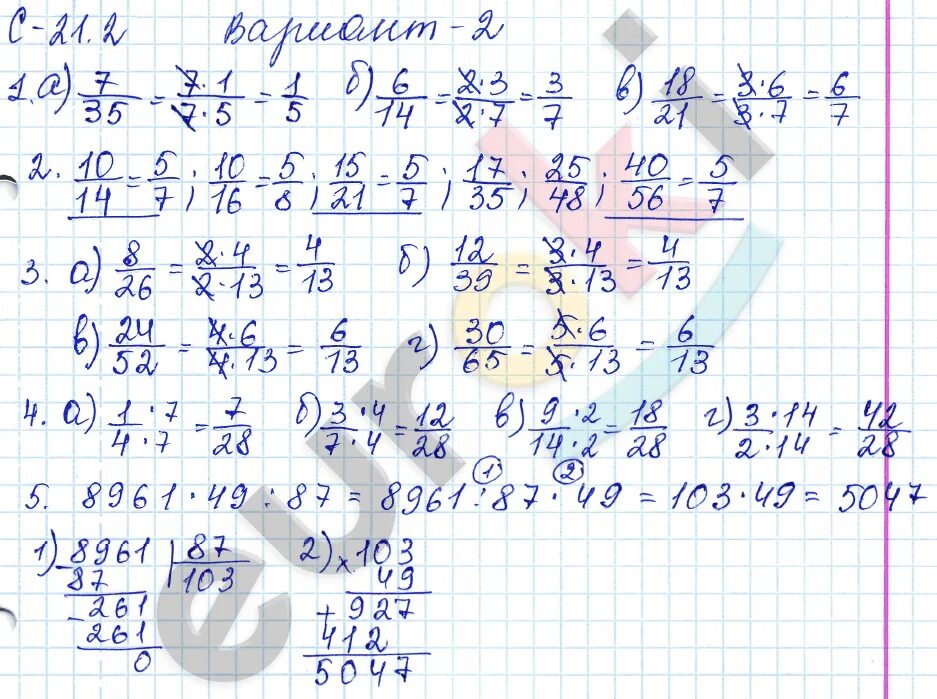 С-21.2 Вариант-2
1. а) 7/35 = 7·1/7·5 = 1/5 б) 6/14 = 2·3/2·7 = 3/7 в) 18/21 = 3·6/3·7 = 6/7
2. 10/14 = 5/7; 10/16 = 5/8; 15/21 = 5/7; 17/35; 25/48; 40/56 = 5/7
3. а) 8/26 = 2·4/2·13 = 4/13 б) 12/39 = 3·4/3·13 = 4/13
в) 24/52 = 4·6/4·13 = 6/13 г) 30/65 = 5·6/5·13 = 6/13
4. а) 1·7/4·7 = 7/28 б) 3·4/7·4 = 12/28 в) 9·2/14·2 = 18/28 г) 3·14/2·14 = 42/28
1 2
5. 8961·49:87 = 8961:87·49 = 103·49 = 5047
1) 8961 | 87 2) × 103
- 87 103 49
- 261 + 927
261 412
0 5047
euroki